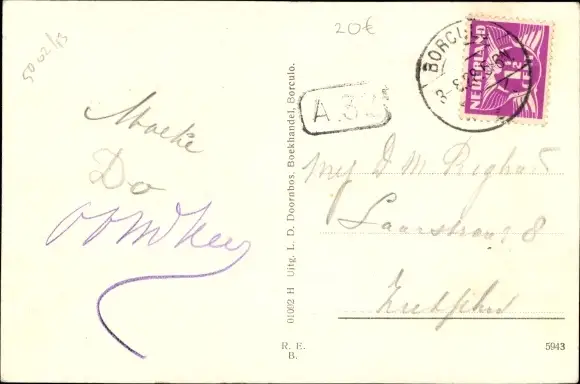 5002/13
20€
BORCULO
NEDERLAND
1½
CENT
A.32
Moeke
Do
Mej D M
Laarstraat 8
Zutphen
01002 H Uitg. L. D. Doornbos, Boekhandel, Borculo.
R. E.
B.
5943